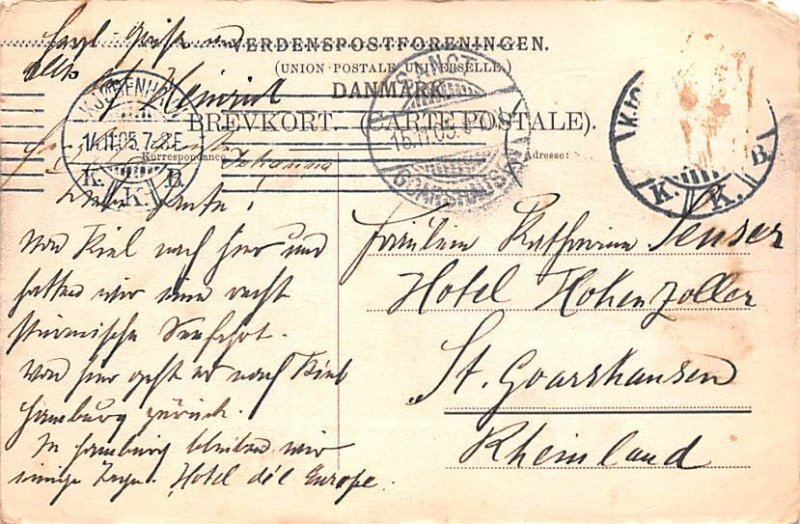 Herzl. Grüße
Heinrich
Johanna
VERDENSPOSTFORENINGEN.
(UNION POSTALE UNIVERSELLE.)
DANMARK.
BREVKORT. (CARTE POSTALE).
Korrespondance
Adresse:
KJØBENHAVN
14.11.05.7-8E.
K. K. B.
SANCT
16.11.05
GOARSHAUSEN
K. K. B.
Liebe Tante!
Von Kiel nach hier und
hatten wir eine recht
stürmische Seefahrt.
Von hier geht es nach Kiel
Hamburg zurück.
In Hamburg bleiben wir
einige Tage. Hotel de l'Europe.
Fräulein Katharina
Hotel Hohenzoller
St. Goarshausen
Rheinland